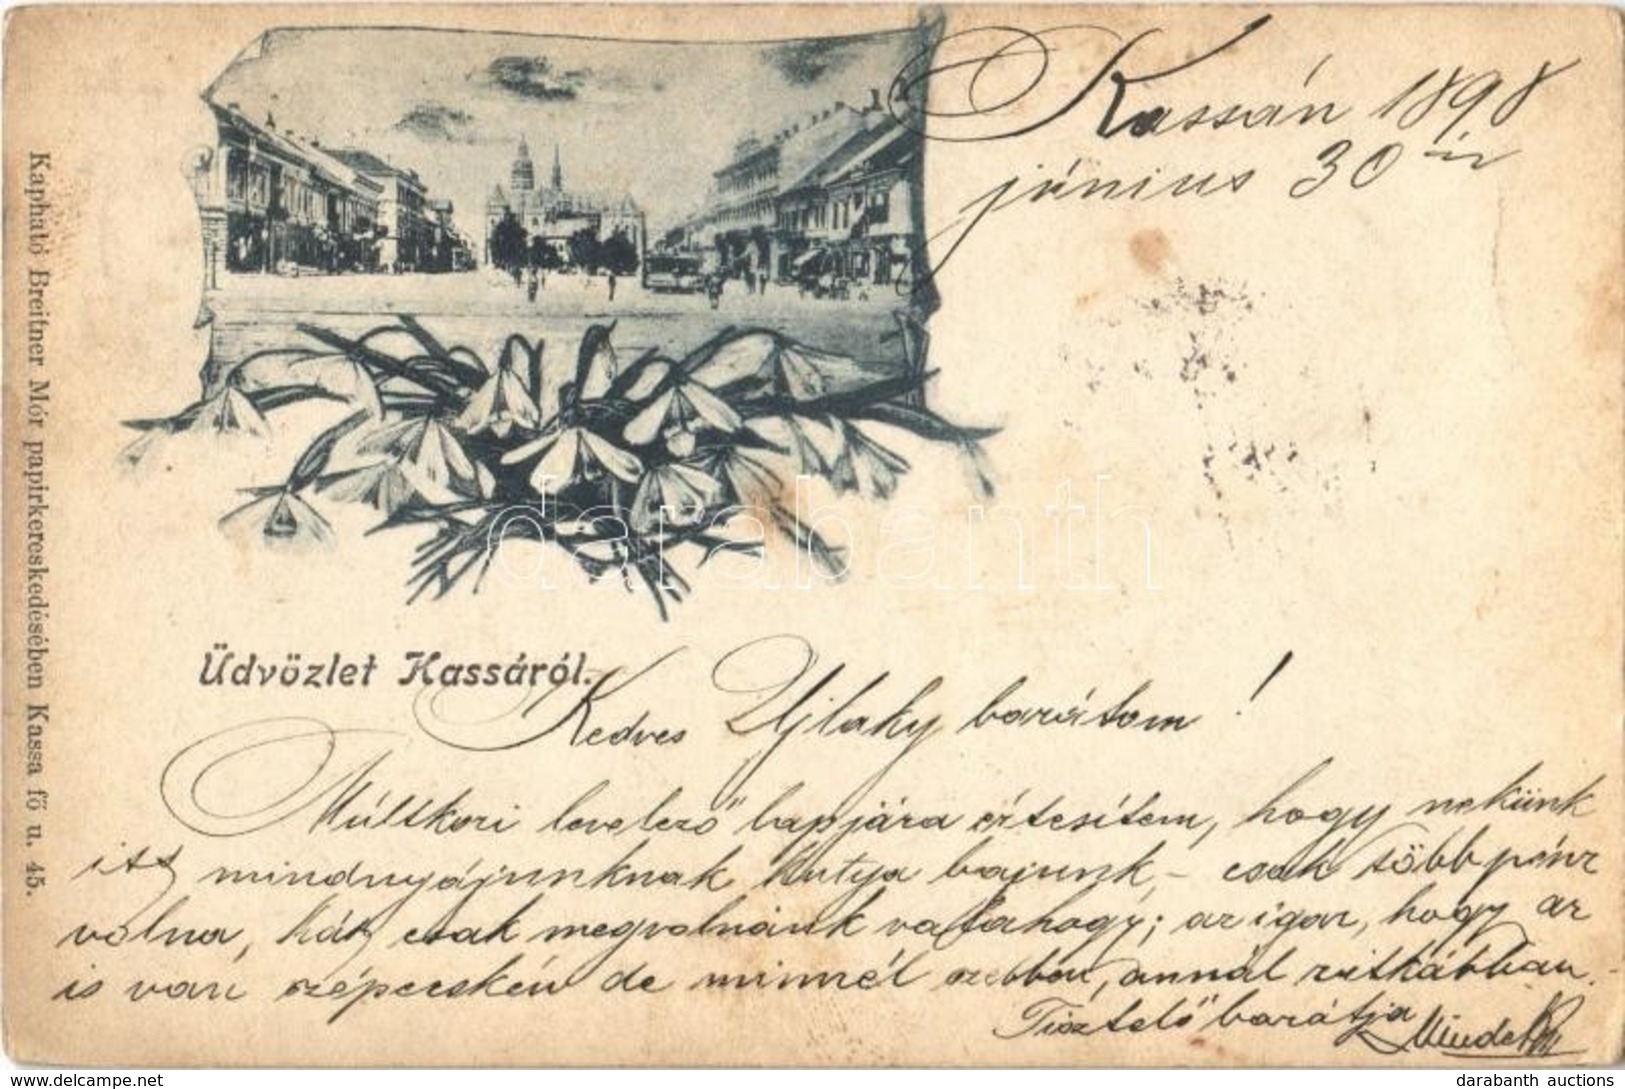 Kassán 1898
június 30 án
Kapható Breitner Mór papirkereskedésében Kassa fő u. 45.
darabanth
Üdvözlet Kassáról.
Kedves Ujlaky barátom!
Múltkori levelező lapjára értesítem, hogy nekünk
itt mindnyájunknak kutya bajunk – csak több pénz
volna, hát csak megvolnánk valahogy; az igaz, hogy az
is van szépecskén de minnél szebben, annál ritkábban.
Tisztelő barátja
delcampe.net
darabanth auctions